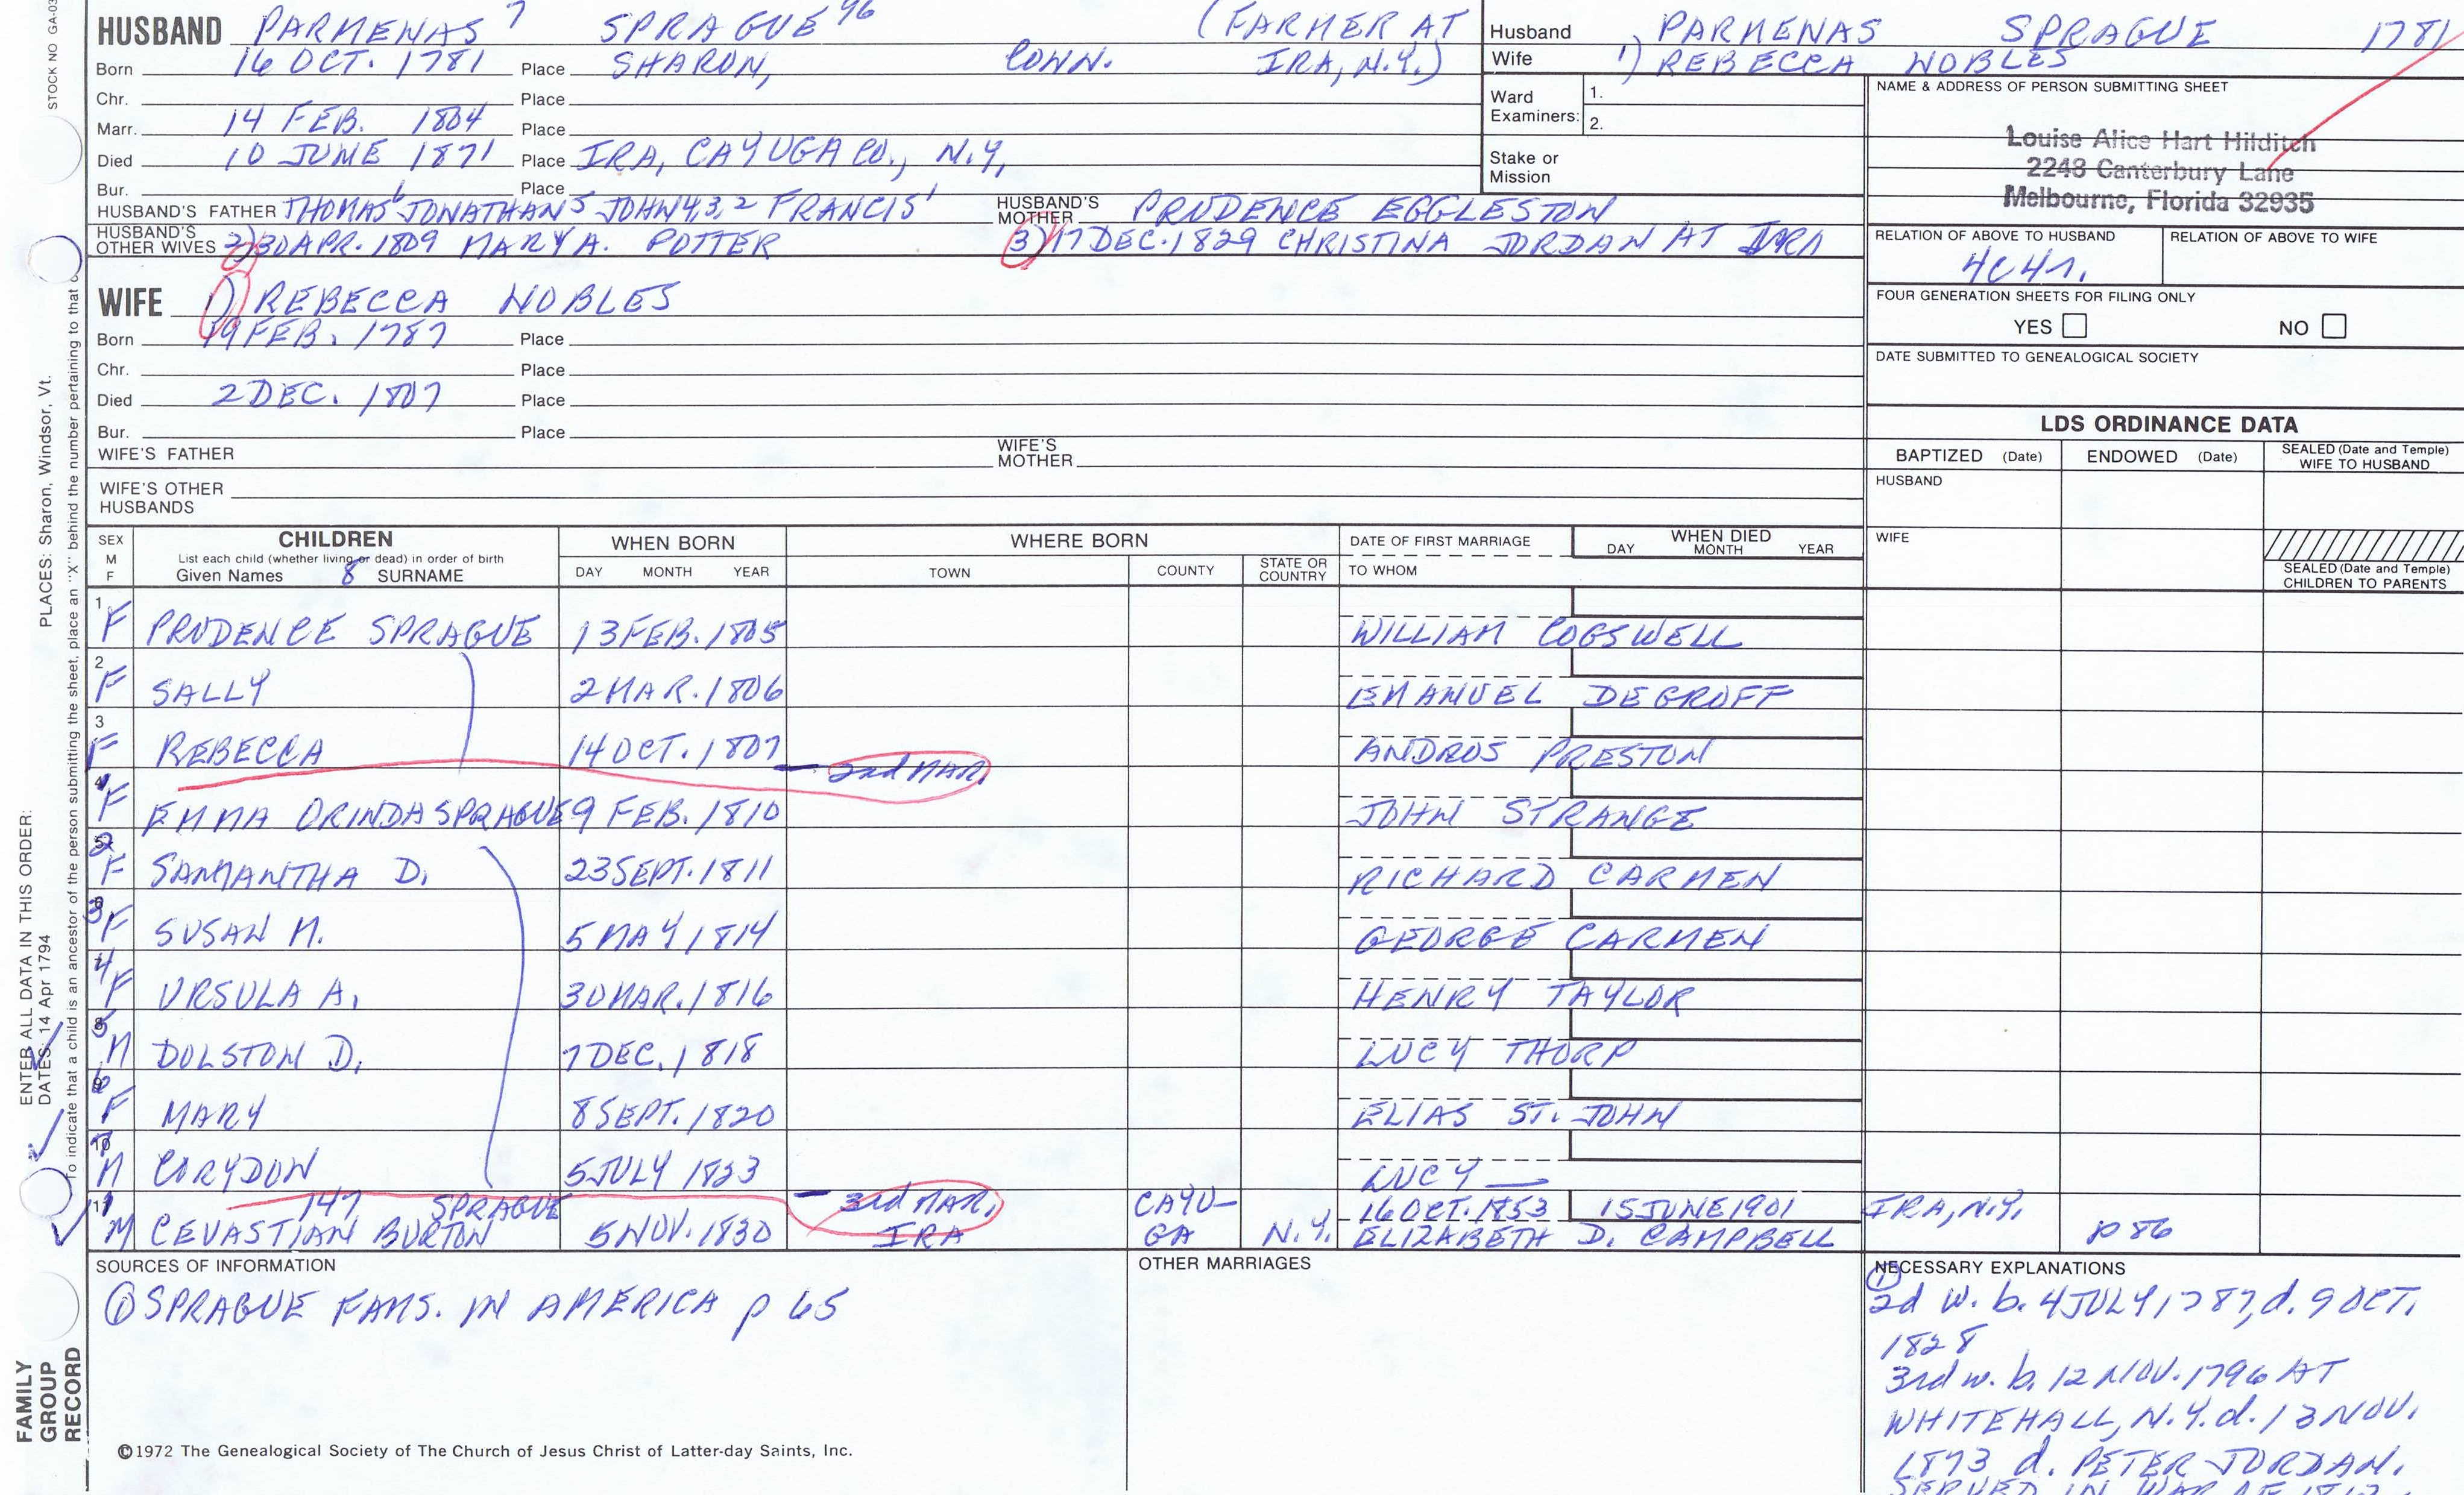 STOCK NO GA-03
HUSBAND PARMENAS 7 SPRAGUE 96 (FARMER AT
Born 16 OCT. 1781 Place SHARON, CONN. IRA, N.Y.)
Chr. Place
Marr. 14 FEB. 1804 Place
Died 10 JUNE 1871 Place IRA, CAYUGA CO., N.Y.
Bur. Place
HUSBAND'S FATHER THOMAS 6 JONATHAN 5 JOHN 4,3,2 FRANCIS 1 HUSBAND'S MOTHER PRUDENCE EGGLESTON
HUSBAND'S OTHER WIVES 2) 30 APR. 1809 MARY A. POTTER 3) 17 DEC. 1829 CHRISTINA JORDAN AT IRA
Husband PARMENAS SPRAGUE 1781
Wife 1) REBECCA NOBLES
Ward Examiners: 1.
2.
Stake or Mission
NAME & ADDRESS OF PERSON SUBMITTING SHEET
Louise Alice Hart Hilditch
2248 Canterbury Lane
Melbourne, Florida 32935
RELATION OF ABOVE TO HUSBAND RELATION OF ABOVE TO WIFE
4C4r.
FOUR GENERATION SHEETS FOR FILING ONLY
YES NO
DATE SUBMITTED TO GENEALOGICAL SOCIETY
WIFE 1) REBECCA NOBLES
Born 19 FEB. 1787 Place
Chr. Place
Died 2 DEC. 1807 Place
Bur. Place
WIFE'S FATHER WIFE'S MOTHER
WIFE'S OTHER HUSBANDS
LDS ORDINANCE DATA
BAPTIZED (Date) ENDOWED (Date) SEALED (Date and Temple) WIFE TO HUSBAND
HUSBAND
WIFE
SEALED (Date and Temple) CHILDREN TO PARENTS
SEX M F CHILDREN List each child (whether living or dead) in order of birth Given Names 8 SURNAME WHEN BORN DAY MONTH YEAR WHERE BORN TOWN COUNTY STATE OR COUNTRY DATE OF FIRST MARRIAGE TO WHOM WHEN DIED DAY MONTH YEAR
1 F PRUDENCE SPRAGUE 13 FEB. 1805 WILLIAM COGSWELL
2 F SALLY 2 MAR. 1806 EMANUEL DEGROFF
3 F REBECCA 14 OCT. 1807 ANDROS PRESTON
2nd MAR.
F EMMA ORINDA SPRAGUE 9 FEB. 1810 JOHN STRANGE
2 F SAMANTHA D. 23 SEPT. 1811 RICHARD CARMEN
3 F SUSAN M. 5 MAY 1814 GEORGE CARMEN
4 F URSULA A. 30 MAR. 1816 HENRY TAYLOR
5 M DOLSTON D. 7 DEC. 1818 LUCY THORP
6 F MARY 8 SEPT. 1820 ELIAS ST. JOHN
M CORYDON 5 JULY 1823 LUCY —
1 147 SPRAGUE 3rd MAR. CAYU- 16 OCT. 1853 15 JUNE 1901 IRA, N.Y.
M CEVASTIAN BURTON 5 NOV. 1830 IRA GA N.Y. ELIZABETH D. CAMPBELL p 86
SOURCES OF INFORMATION
① SPRAGUE FAMS. IN AMERICA p 65
OTHER MARRIAGES
NECESSARY EXPLANATIONS
① 2d w. b. 4 JULY 1787, d. 9 OCT.
1828
3rd w. b. 12 NOV. 1796 AT
WHITEHALL, N.Y. d. 13 NOV.
1873 d. PETER JORDAN.
SERVED IN WAR OF 1812
©1972 The Genealogical Society of The Church of Jesus Christ of Latter-day Saints, Inc.
ENTER ALL DATA IN THIS ORDER:
DATES: 14 Apr 1794 PLACES: Sharon, Windsor, Vt.
To indicate that a child is an ancestor of the person submitting the sheet, place an "X" behind the number pertaining to that
FAMILY
GROUP
RECORD